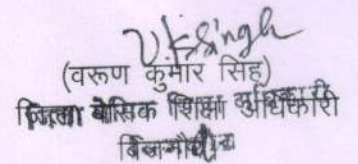 V.K.Singh
(वरूण कुमार सिंह)
जिला बेसिक शिक्षा अधिकारी